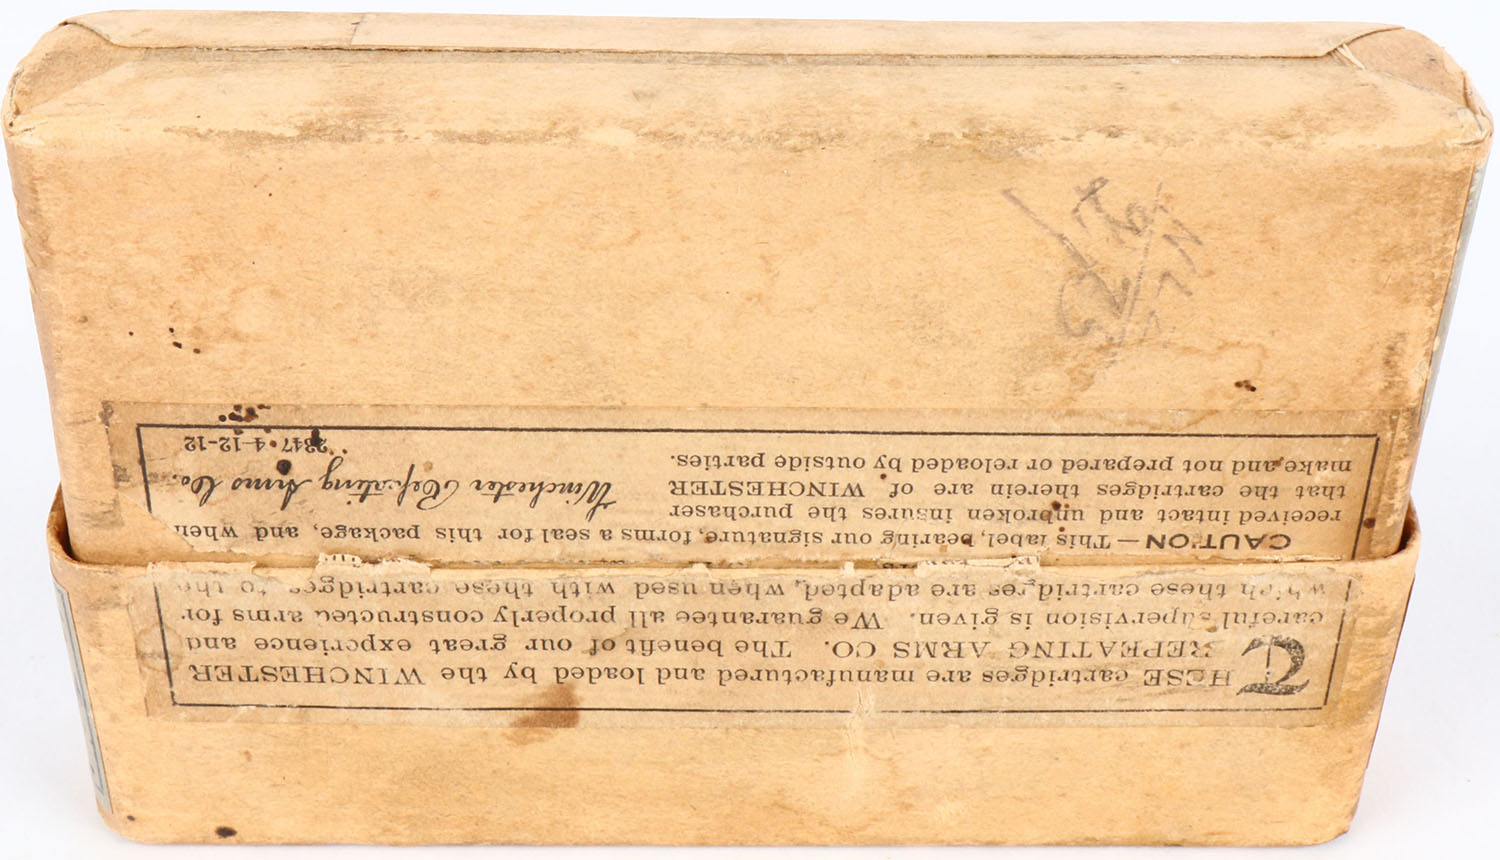 THESE cartridges are manufactured and loaded by the WINCHESTER
REPEATING ARMS CO. The benefit of our great experience and
careful supervision is given. We guarantee all properly constructed arms for
which these cartridges are adapted, when used with these cartridges to the
CAUTION — This label, bearing our signature, forms a seal for this package, and when
received intact and unbroken insures the purchaser
that the cartridges therein are of WINCHESTER
make and not prepared or reloaded by outside parties.
Winchester Repeating Arms Co.
2347 4-12-12